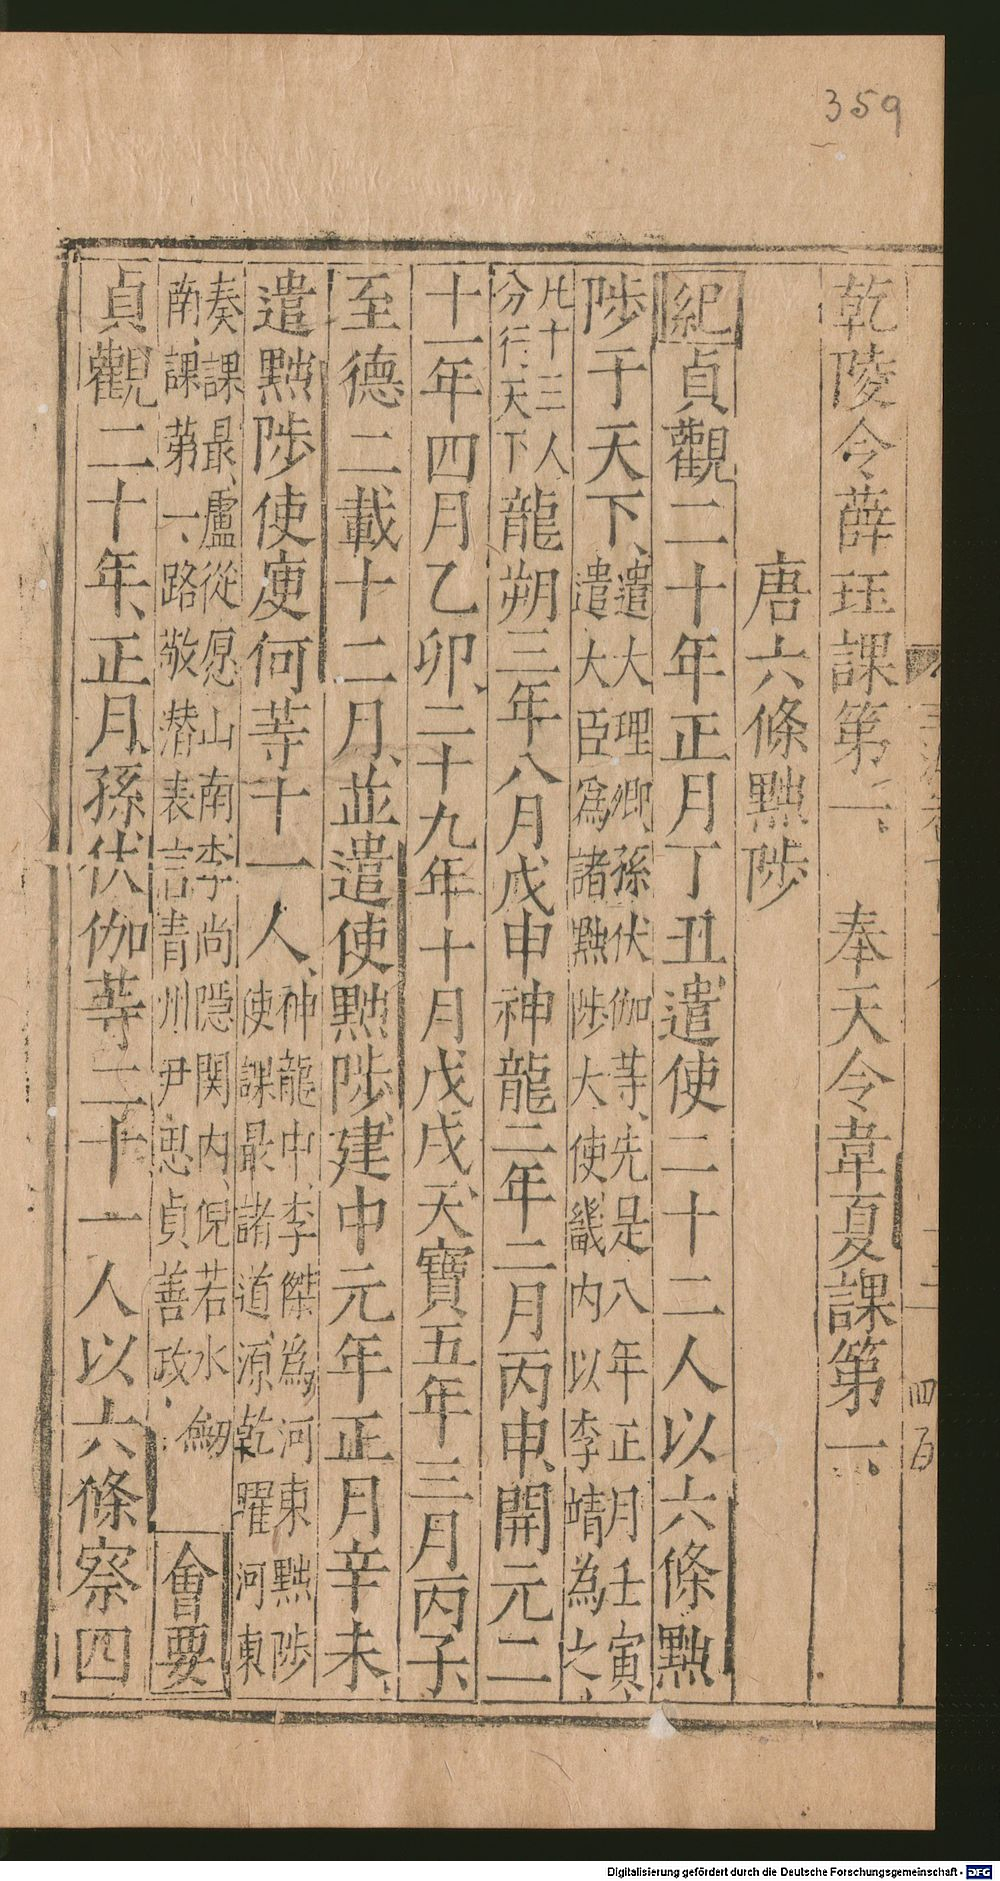 359
乾陵令薛珏課第一 奉天令韋夏課第一
唐六條黜陟
紀貞觀二十年正月丁丑遣使二十二人以六條黜
陟于天下遣大理卿孫伏伽䓁先是八年正月壬寅
遣大臣爲諸黜陟大使畿内以李靖為之
凡十三人
分行天下龍朔三年八月戊申神龍二年二月丙申開元二
十一年四月乙卯二十九年十月戊戌天寶五年三月丙子
至德二載十二月並遣使黜陟建中元年正月辛未
遣黜陟使庾何䓁十一人神龍中李傑為河東黜陟
使課最諸道源乾曜河東
奏課最盧從愿山南李尚隱関内倪若水劒
南課第一路敬潜表言青州尹思貞善政 會要
貞觀二十年正月孫伏伽䓁二十一人以六條察四
四百
Digitalisierung gefördert durch die Deutsche Forschungsgemeinschaft - DFG